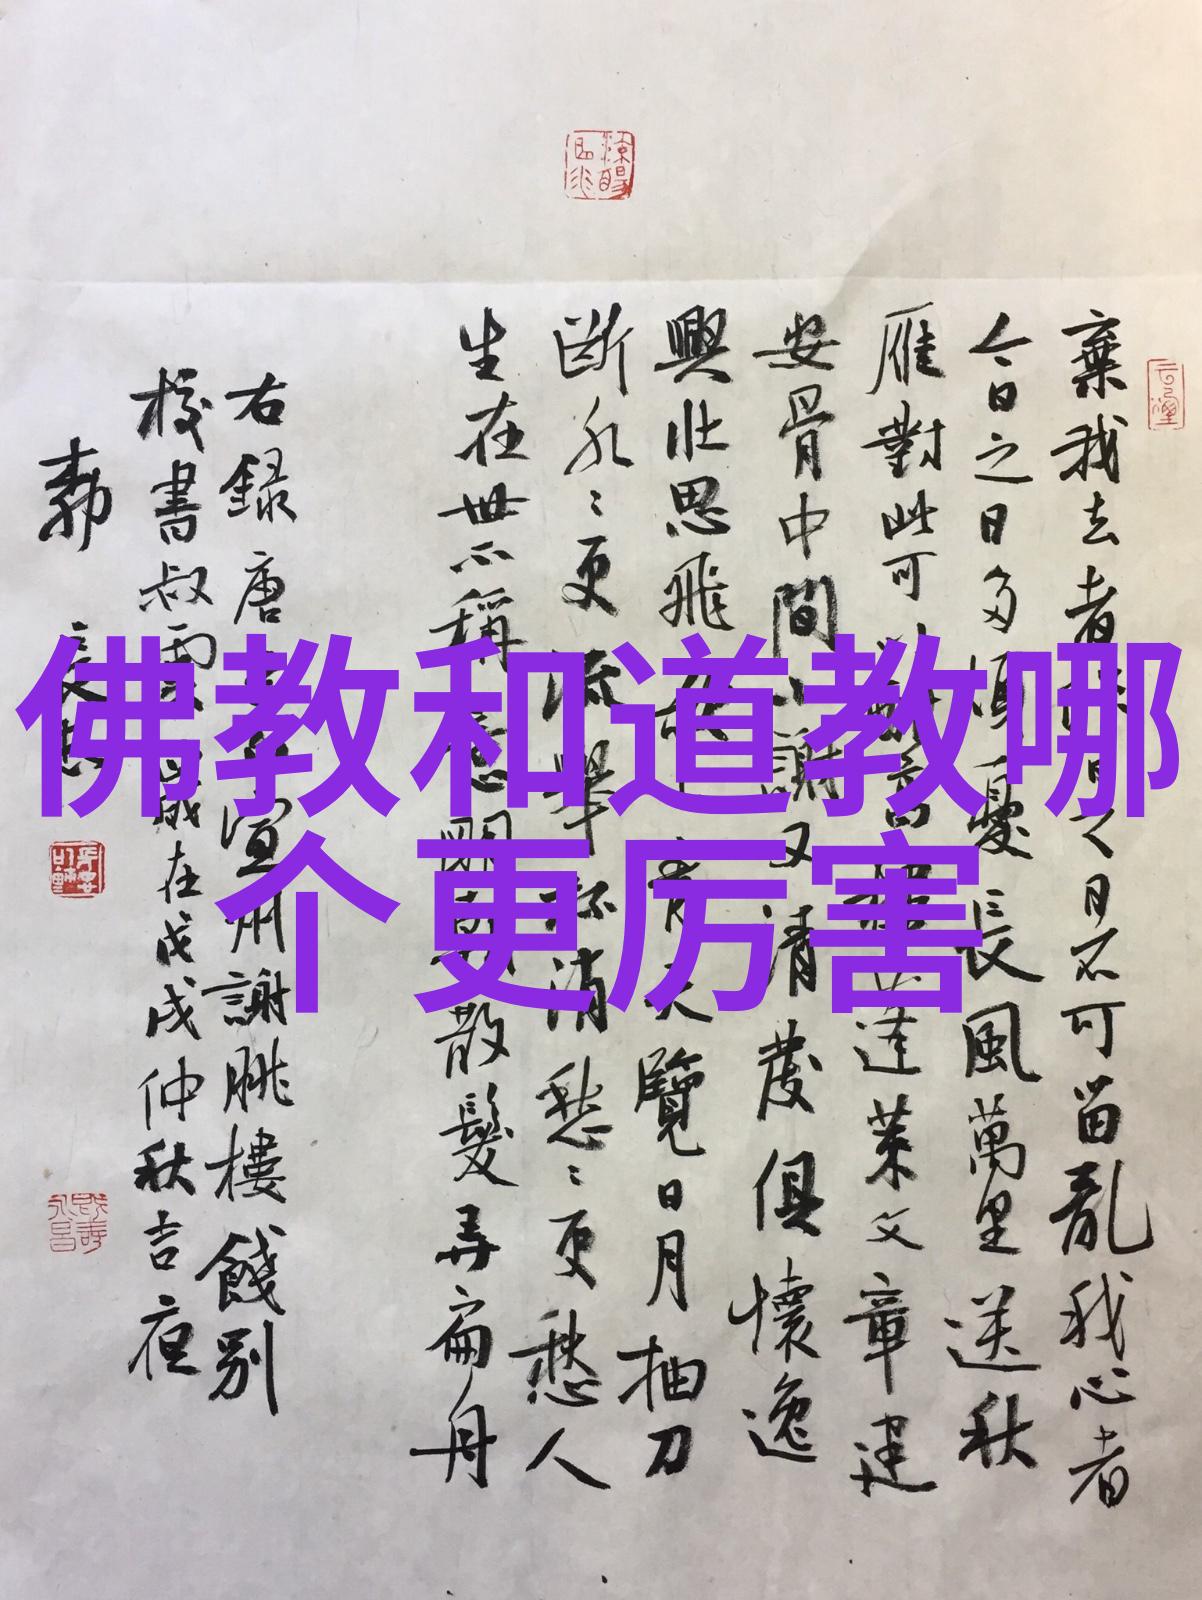 佛教和道教哪
个更厉害
棄我去者昨日之日不可留亂我心者
今日之日多煩憂長風萬里送秋
雁對此可以酣高樓蓬萊文章建
安骨中間小謝又清發俱懷逸
興壯思飛欲上青天覽日月抽刀
斷水〻更流舉杯消愁〻更愁人
生在世不稱意明朝散髮弄扁舟
右録唐李白宣州謝朓樓餞別
校書叔雲歲在戊戌仲秋吉夜